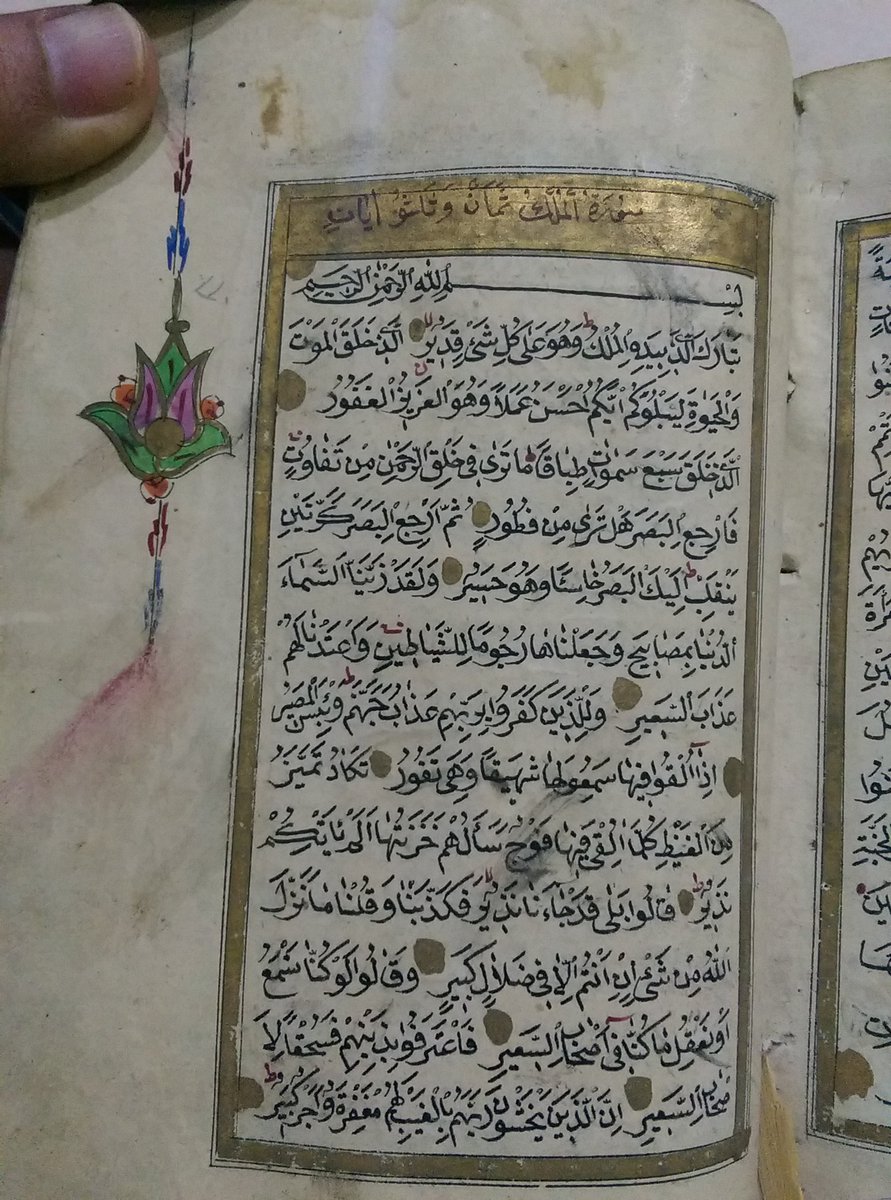 سُورَةُ الْمُلْكِ ثَمَانَ آيَاتٍ
بِسْمِ اللهِ الرَّحْمٰنِ الرَّحِيمِ
تَبَارَكَ الَّذِي بِيَدِهِ الْمُلْكُ وَهُوَ عَلٰى كُلِّ شَيْءٍ قَدِيرٌ الَّذِي خَلَقَ الْمَوْتَ
وَالْحَيٰوةَ لِيَبْلُوَكُمْ اَيُّكُمْ اَحْسَنُ عَمَلًا وَهُوَ الْعَزِيزُ الْغَفُورُ
الَّذِي خَلَقَ سَبْعَ سَمٰوَاتٍ طِبَاقًا مَا تَرٰى فِي خَلْقِ الرَّحْمٰنِ مِنْ تَفَاوُتٍ
فَارْجِعِ الْبَصَرَ هَلْ تَرٰى مِنْ فُطُورٍ ثُمَّ ارْجِعِ الْبَصَرَ كَرَّتَيْنِ
يَنْقَلِبْ اِلَيْكَ الْبَصَرُ خَاسِئًا وَهُوَ حَسِيرٌ وَلَقَدْ زَيَّنَّا السَّمَاءَ
الدُّنْيَا بِمَصَابِيحَ وَجَعَلْنَاهَا رُجُومًا لِلشَّيَاطِينِ وَاَعْتَدْنَا لَهُمْ
عَذَابَ السَّعِيرِ وَلِلَّذِينَ كَفَرُوا بِرَبِّهِمْ عَذَابُ جَهَنَّمَ وَبِئْسَ الْمَصِيرُ
اِذَا اُلْقُوا فِيهَا سَمِعُوا لَهَا شَهِيقًا وَهِيَ تَفُورُ تَكَادُ تَمَيَّزُ
مِنَ الْغَيْظِ كُلَّمَا اُلْقِيَ فِيهَا فَوْجٌ سَأَلَهُمْ خَزَنَتُهَا اَلَمْ يَأْتِكُمْ
نَذِيرٌ قَالُوا بَلٰى قَدْ جَاءَنَا نَذِيرٌ فَكَذَّبْنَا وَقُلْنَا مَا نَزَّلَ
اللهُ مِنْ شَيْءٍ اِنْ اَنْتُمْ اِلَّا فِي ضَلَالٍ كَبِيرٍ وَقَالُوا لَوْ كُنَّا نَسْمَعُ
اَوْ نَعْقِلُ مَا كُنَّا فِي اَصْحَابِ السَّعِيرِ فَاعْتَرَفُوا بِذَنْبِهِمْ فَسُحْقًا لِاَ
صْحَابِ السَّعِيرِ اِنَّ الَّذِينَ يَخْشَوْنَ رَبَّهُمْ بِالْغَيْبِ لَهُمْ مَغْفِرَةٌ وَاَجْرٌ كَبِيرٌ